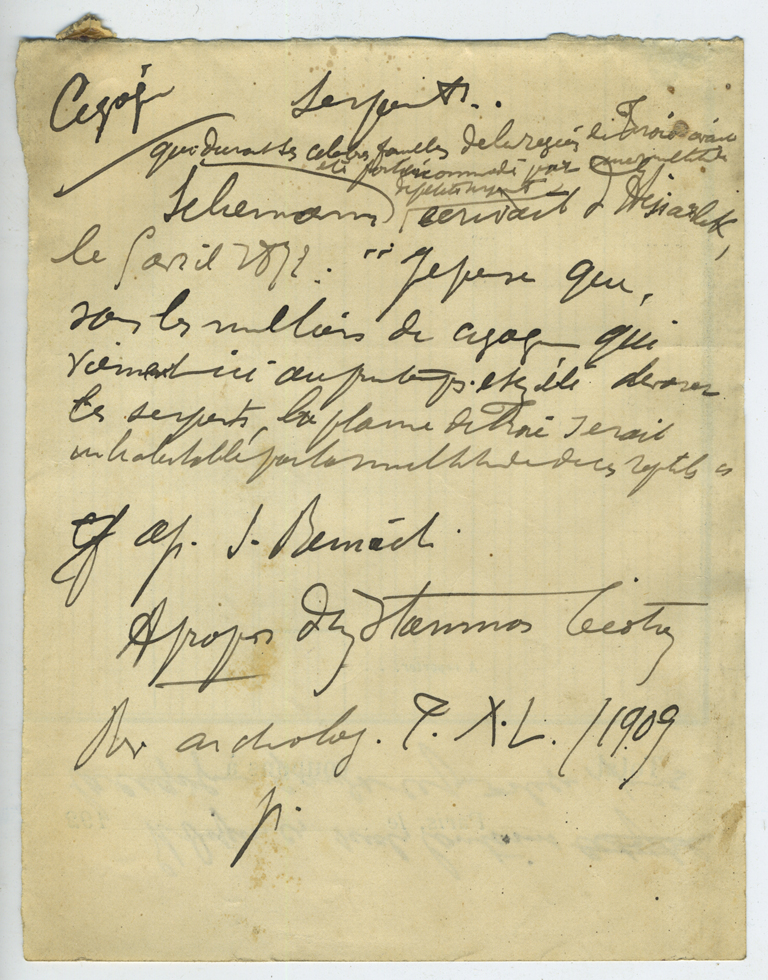 Cigogn Serpents.
qui durant les célèbres fouilles de la région de Troie avait
été fort incommodé par une multitude
de petits serpents
Schliemann écrivait d'Hissarlik,
le 5 avril 1872. "Je pense que,
sans les milliers de cigognes qui
viennent ici au printemps et été dévorer
les serpents, la plaine de Troie serait
inhabitable par la multitude de ces reptiles"
Cf ap. J.
A propos d'un Stamnos
Rev archéolog. T. XL. /1909
p.